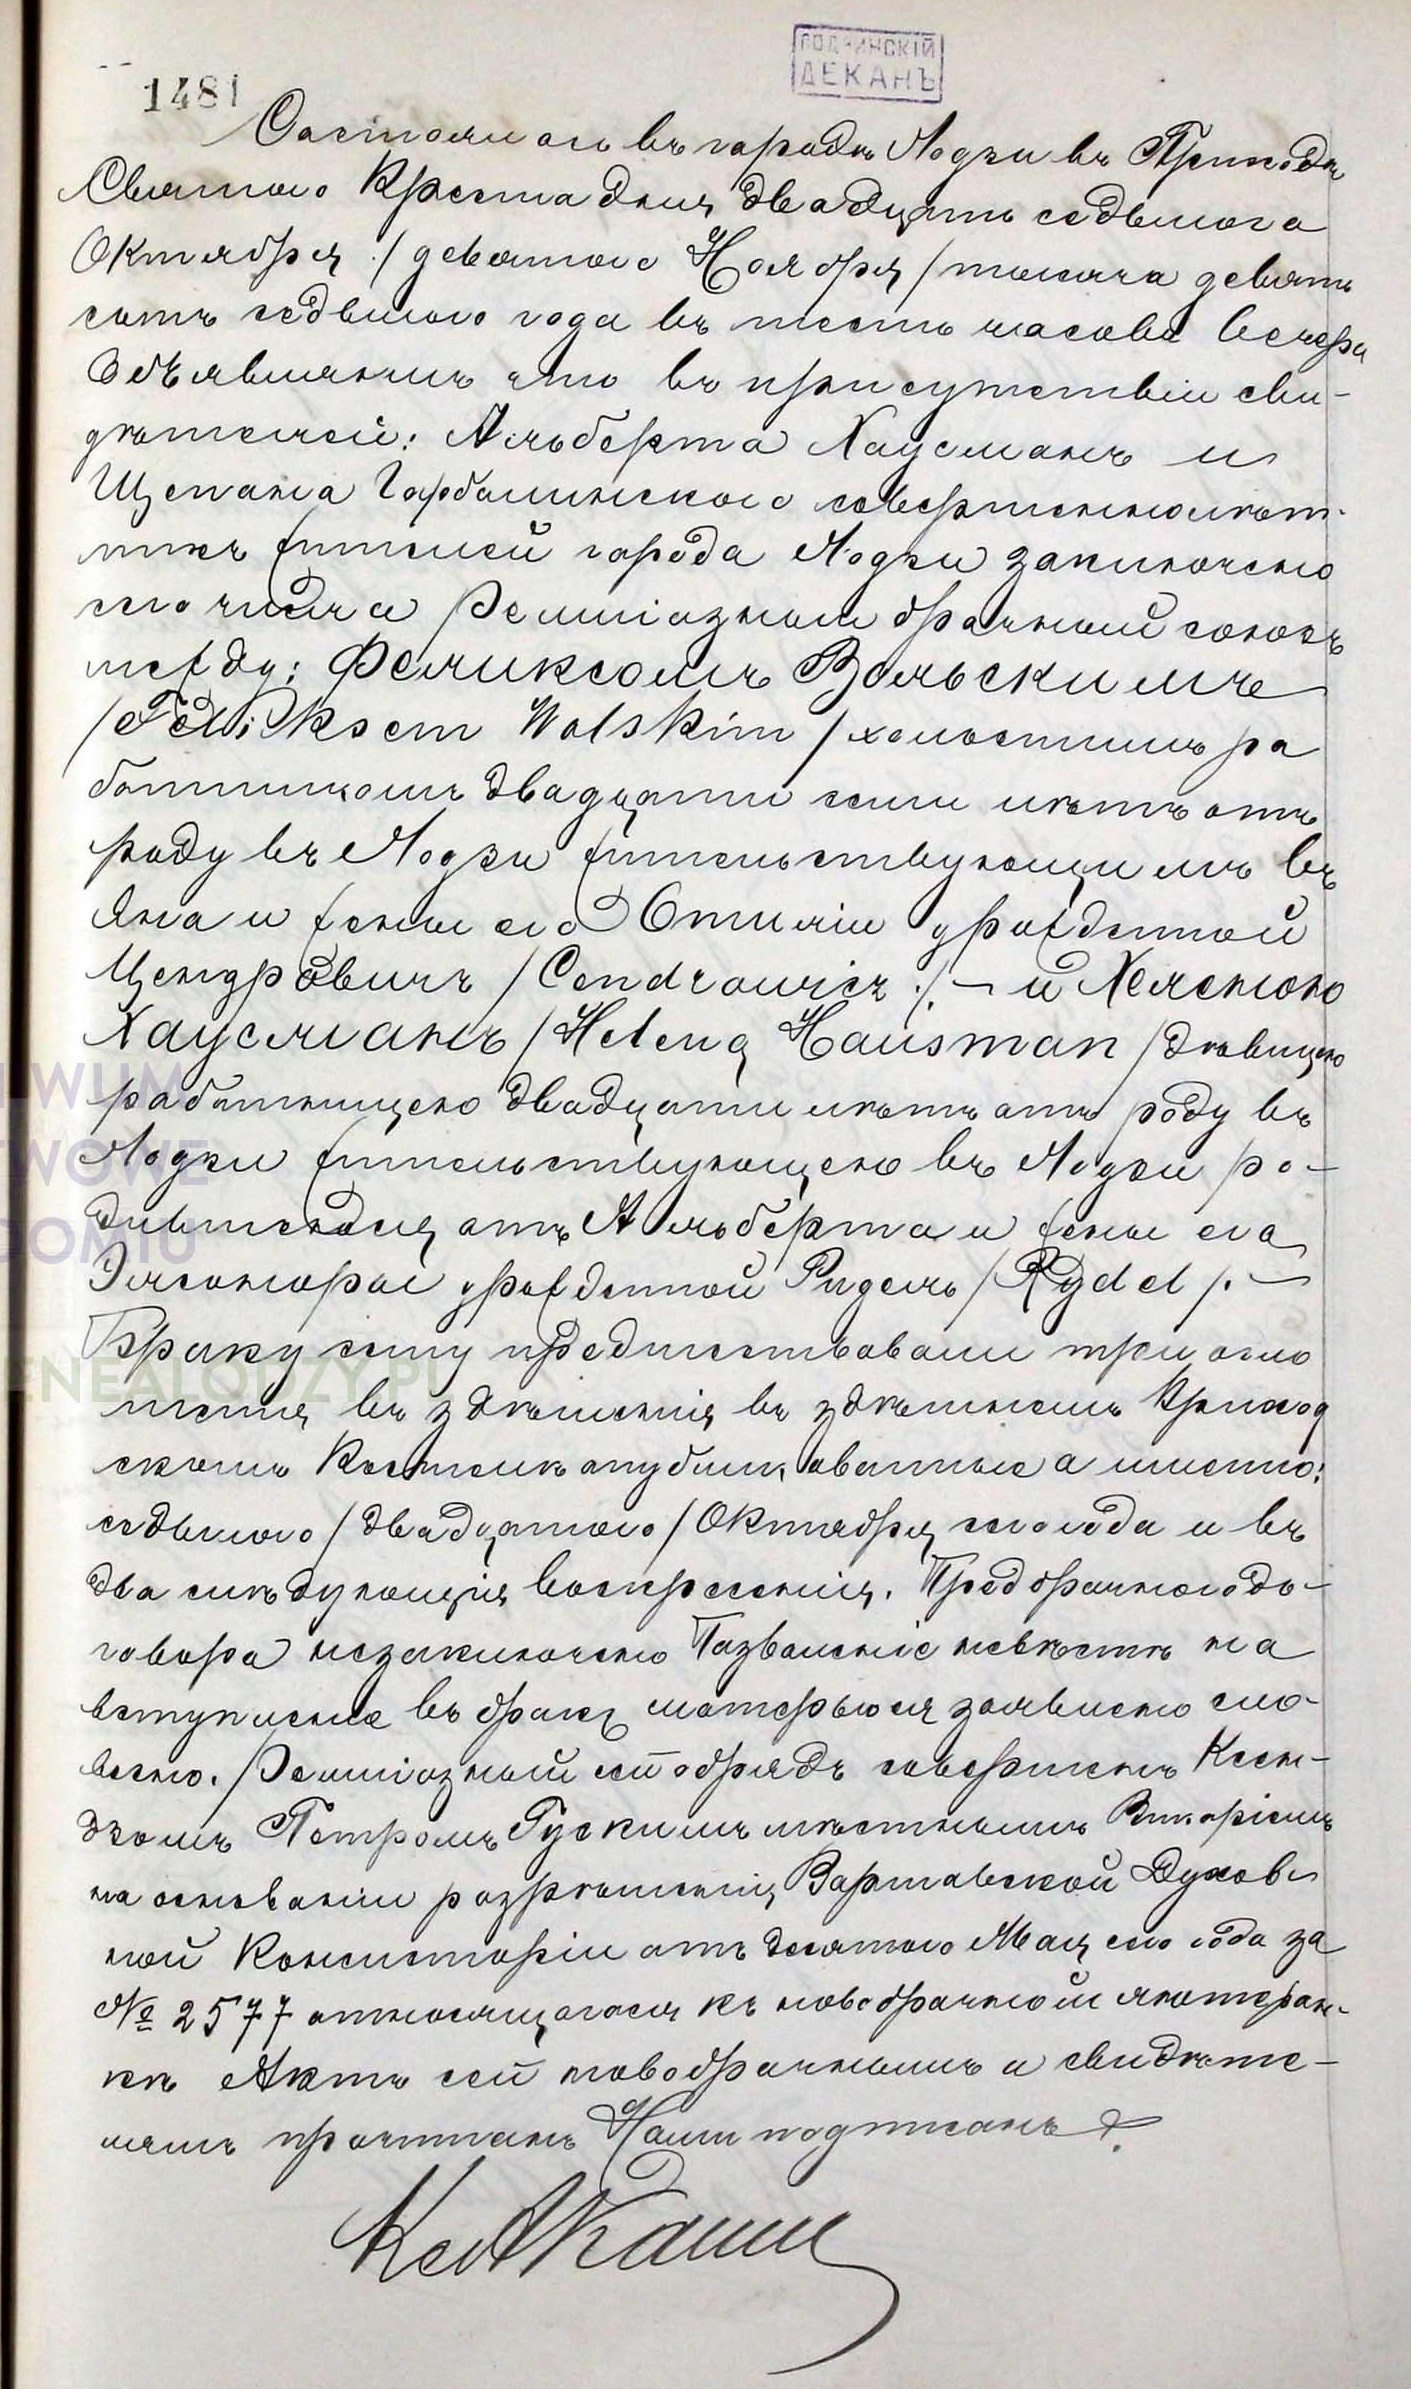 ЛОДЗИНСКІЙ
ДЕКАНЪ
1481
Состоялось въ городѣ Лодзи въ Приходѣ
Святого Креста дня двадцать седьмого
Октября /девятого Ноября/ тысяча девять
сотъ седьмого года въ шесть часовъ вечера
Объявляемъ что въ присутствіи сви-
дѣтелей: Альберта Хаусманъ и
Щепана Гарбалинскаго совершеннолѣт-
нихъ жителей города Лодзи заключено
сего числа Религіозный брачный союзъ
между: Феликсомъ Вольскимъ
/Feliksem Wolskim/ холостымъ ра
ботникомъ двадцати семи лѣтъ отъ
роду въ Лодзи жительствующимъ въ
Яна и жены его Отиліи урожденной
Цендровичъ /Cendrowicz/. — и Хеленою
Хаусманъ /Heleną Hausman/ дѣвицею
работницею двадцати лѣтъ отъ роду въ
Лодзи жительствующею въ Лодзи ро-
дившеюся отъ Альберта и жены его
Элеоноры урожденной Ридель /Rydel/. —
Браку сему предшествовали три огло
шенія въ здѣшнія въ здѣшнемъ Приход
скомъ Костелѣ опубликованные а именно:
седьмого /двадцатого/ Октября сего года и въ
два слѣдующія воскресенія. Предбрачного до-
говора незаключено Позволеніе невѣстѣ на
вступленіе въ бракъ матерью ея заявлено сло-
весно. Религіозный сей обрядъ совершенъ Ксен-
дзомъ Петромъ Гускимъ мѣстнымъ Викаріемъ
на основаніи разрѣшенія Варшавской Духов-
ной Консисторіи отъ десятого Мая сего года за
№ 2577 относящагося къ новобрачной лютеран-
кѣ Актъ сей новобрачнымъ и свидѣте-
лямъ прочитанъ Нами подписанъ